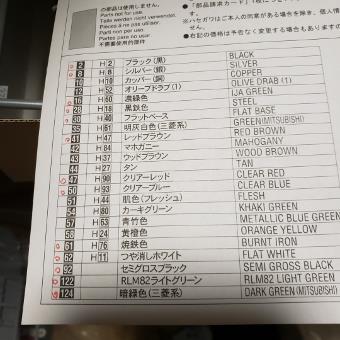 の部品は使用しません。
Parts not for use.
Teile werden nicht verwendet.
Pièces à ne pas utiliser.
Parti non per uso.
Partes para no usar
不需要使用的零件
●「部品請求カード」1枚につ
※ハセガワはご本人の同意がある場合を除き、個人情
●右記の価格は予告なく変更する場合もありますの
2 H 2 ブラック(黒) BLACK
8 H 8 シルバー(銀) SILVER
10 H 10 カッパー(銅) COPPER
12 H 52 オリーブドラブ(1) OLIVE DRAB (1)
16 H 60 濃緑色 IJA GREEN
28 H 18 黒鉄色 STEEL
30 H 40 フラットベース FLAT BASE
35 H 61 明灰白色(三菱系) GREEN(MITSUBISHI)
41 H 47 レッドブラウン RED BROWN
42 H 84 マホガニー MAHOGANY
43 H 37 ウッドブラウン WOOD BROWN
44 H 27 タン TAN
47 H 90 クリアーレッド CLEAR RED
50 H 93 クリアーブルー CLEAR BLUE
51 H 44 肌色(フレッシュ) FLESH
54 H 80 カーキグリーン KHAKI GREEN
57 H 63 青竹色 METALLIC BLUE GREEN
58 H 24 黄橙色 ORANGE YELLOW
61 H 76 焼鉄色 BURNT IRON
62 H 11 つや消しホワイト FLAT WHITE
92 セミグロスブラック SEMI GROSS BLACK
122 RLM82ライトグリーン RLM82 LIGHT GREEN
124 暗緑色(三菱系) DARK GREEN(MITSUBISHI)